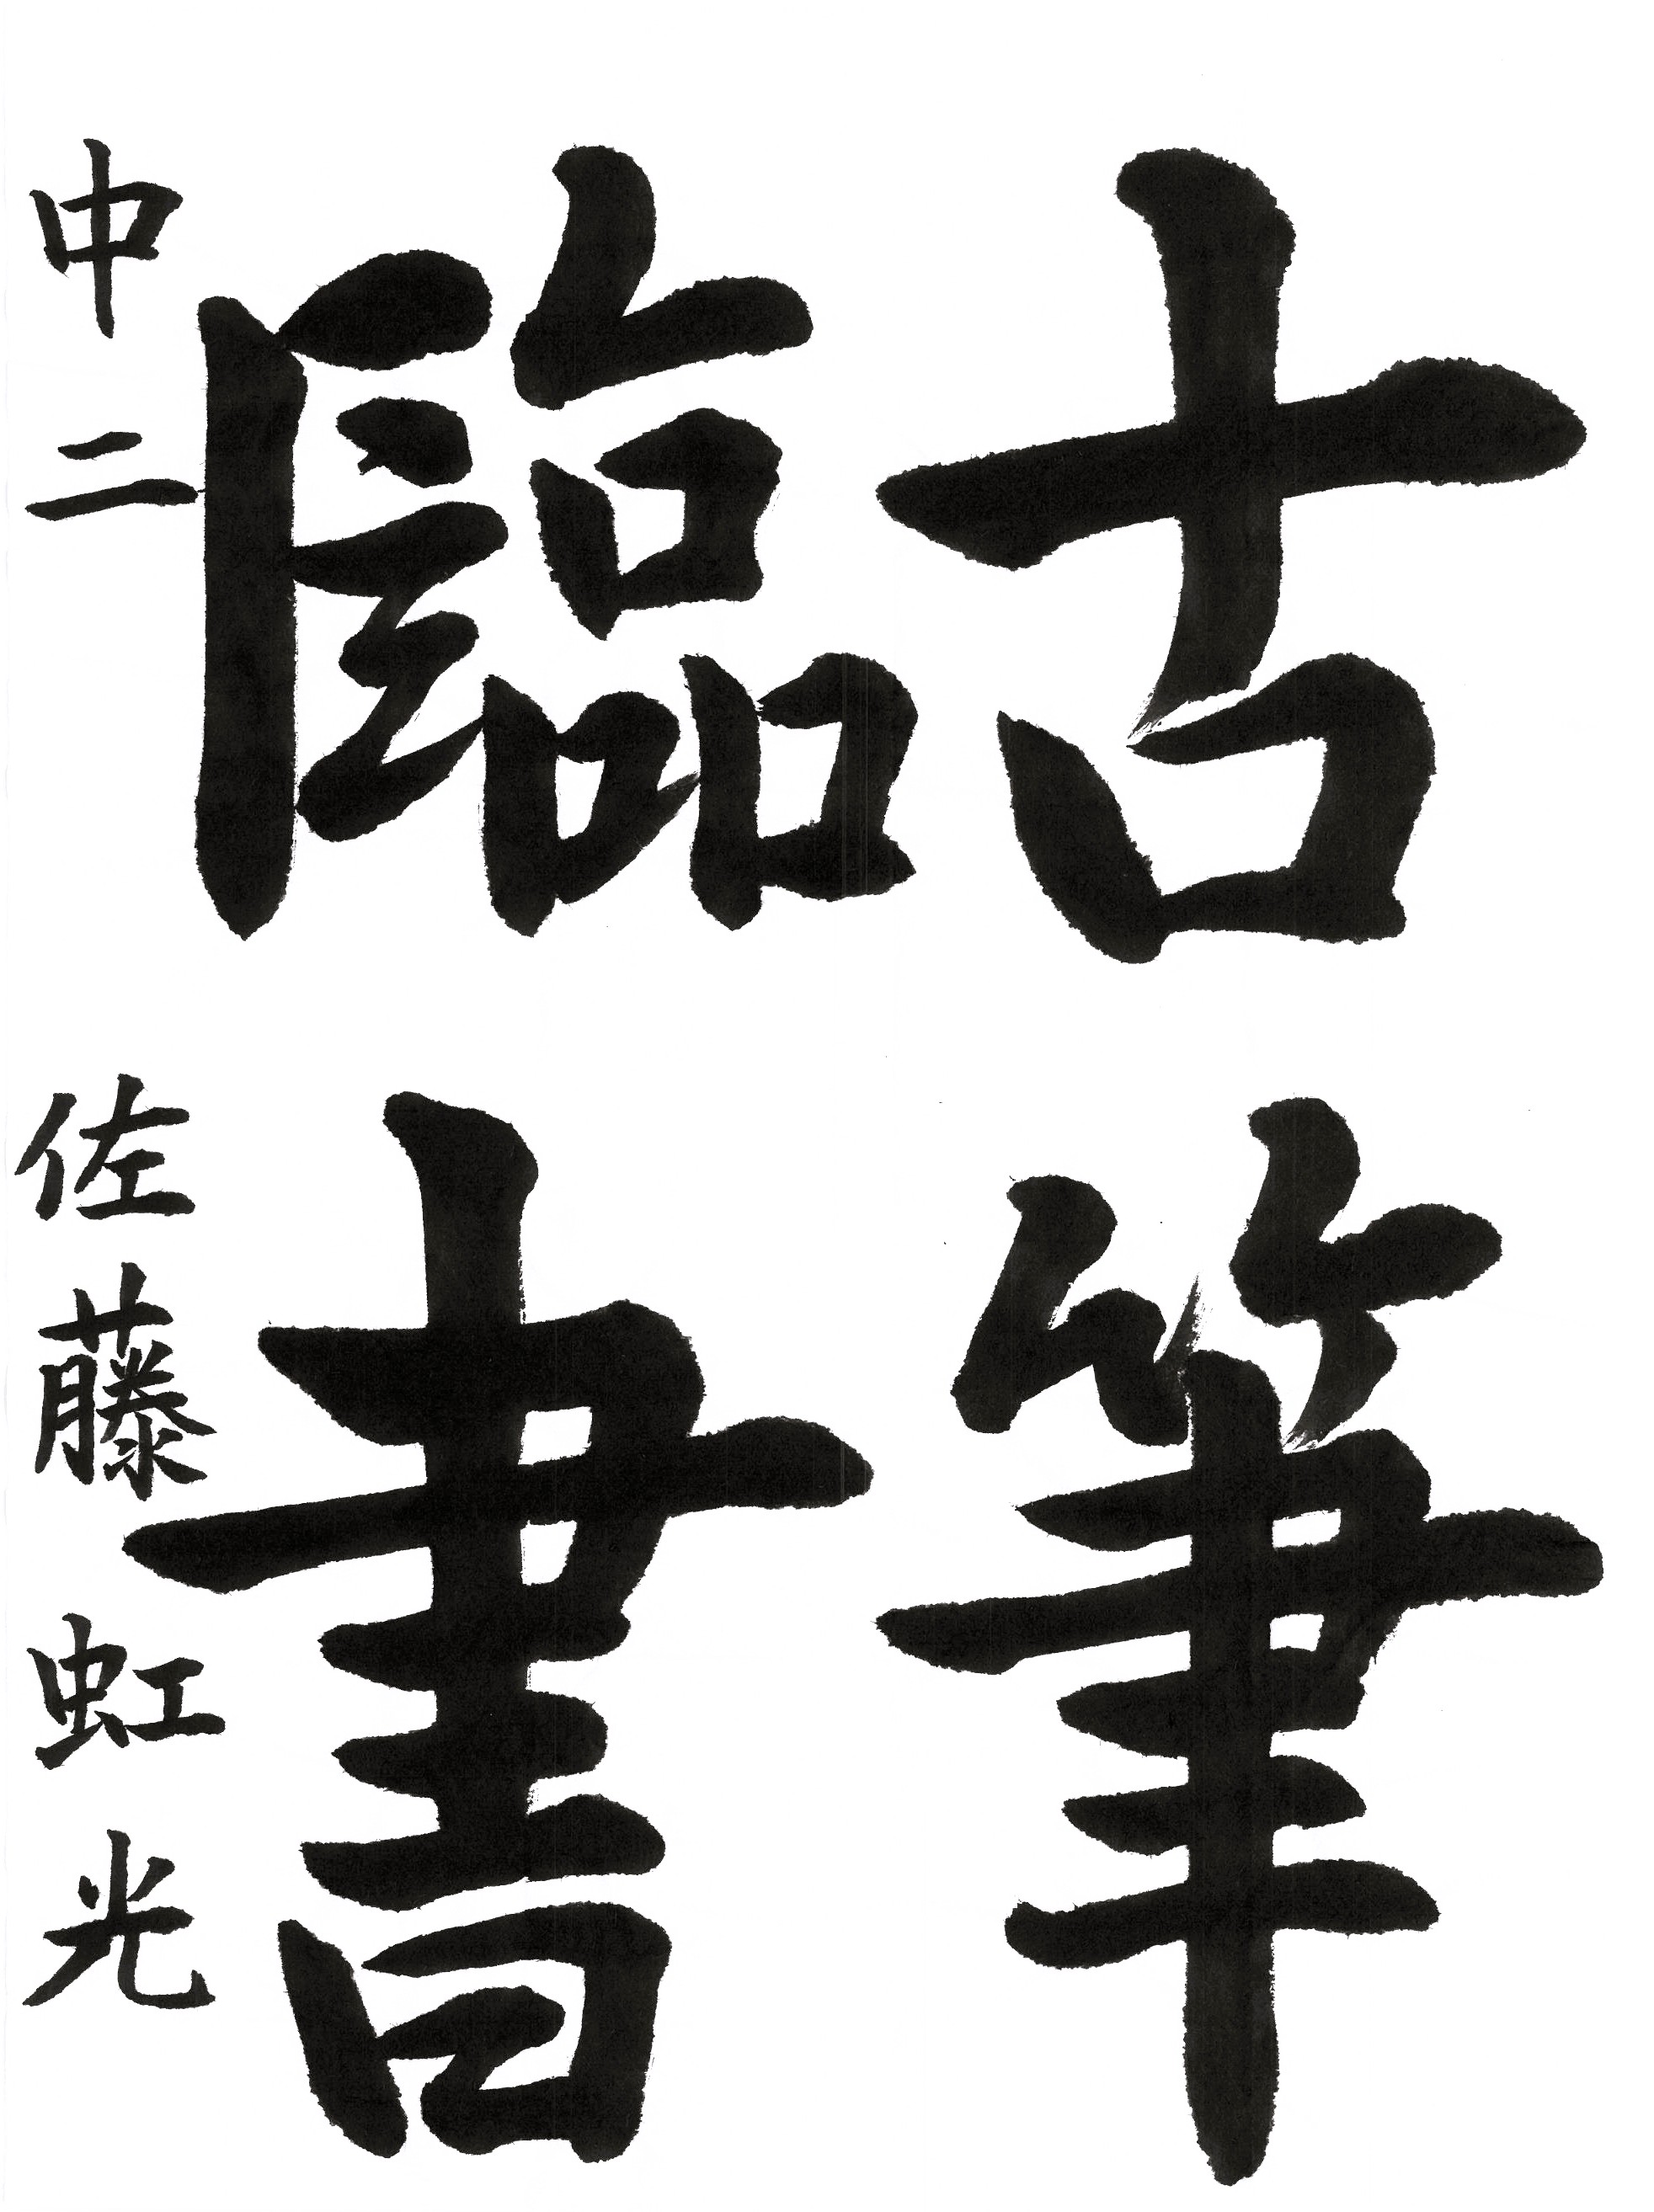 古筆
臨書
中二 佐藤虹光